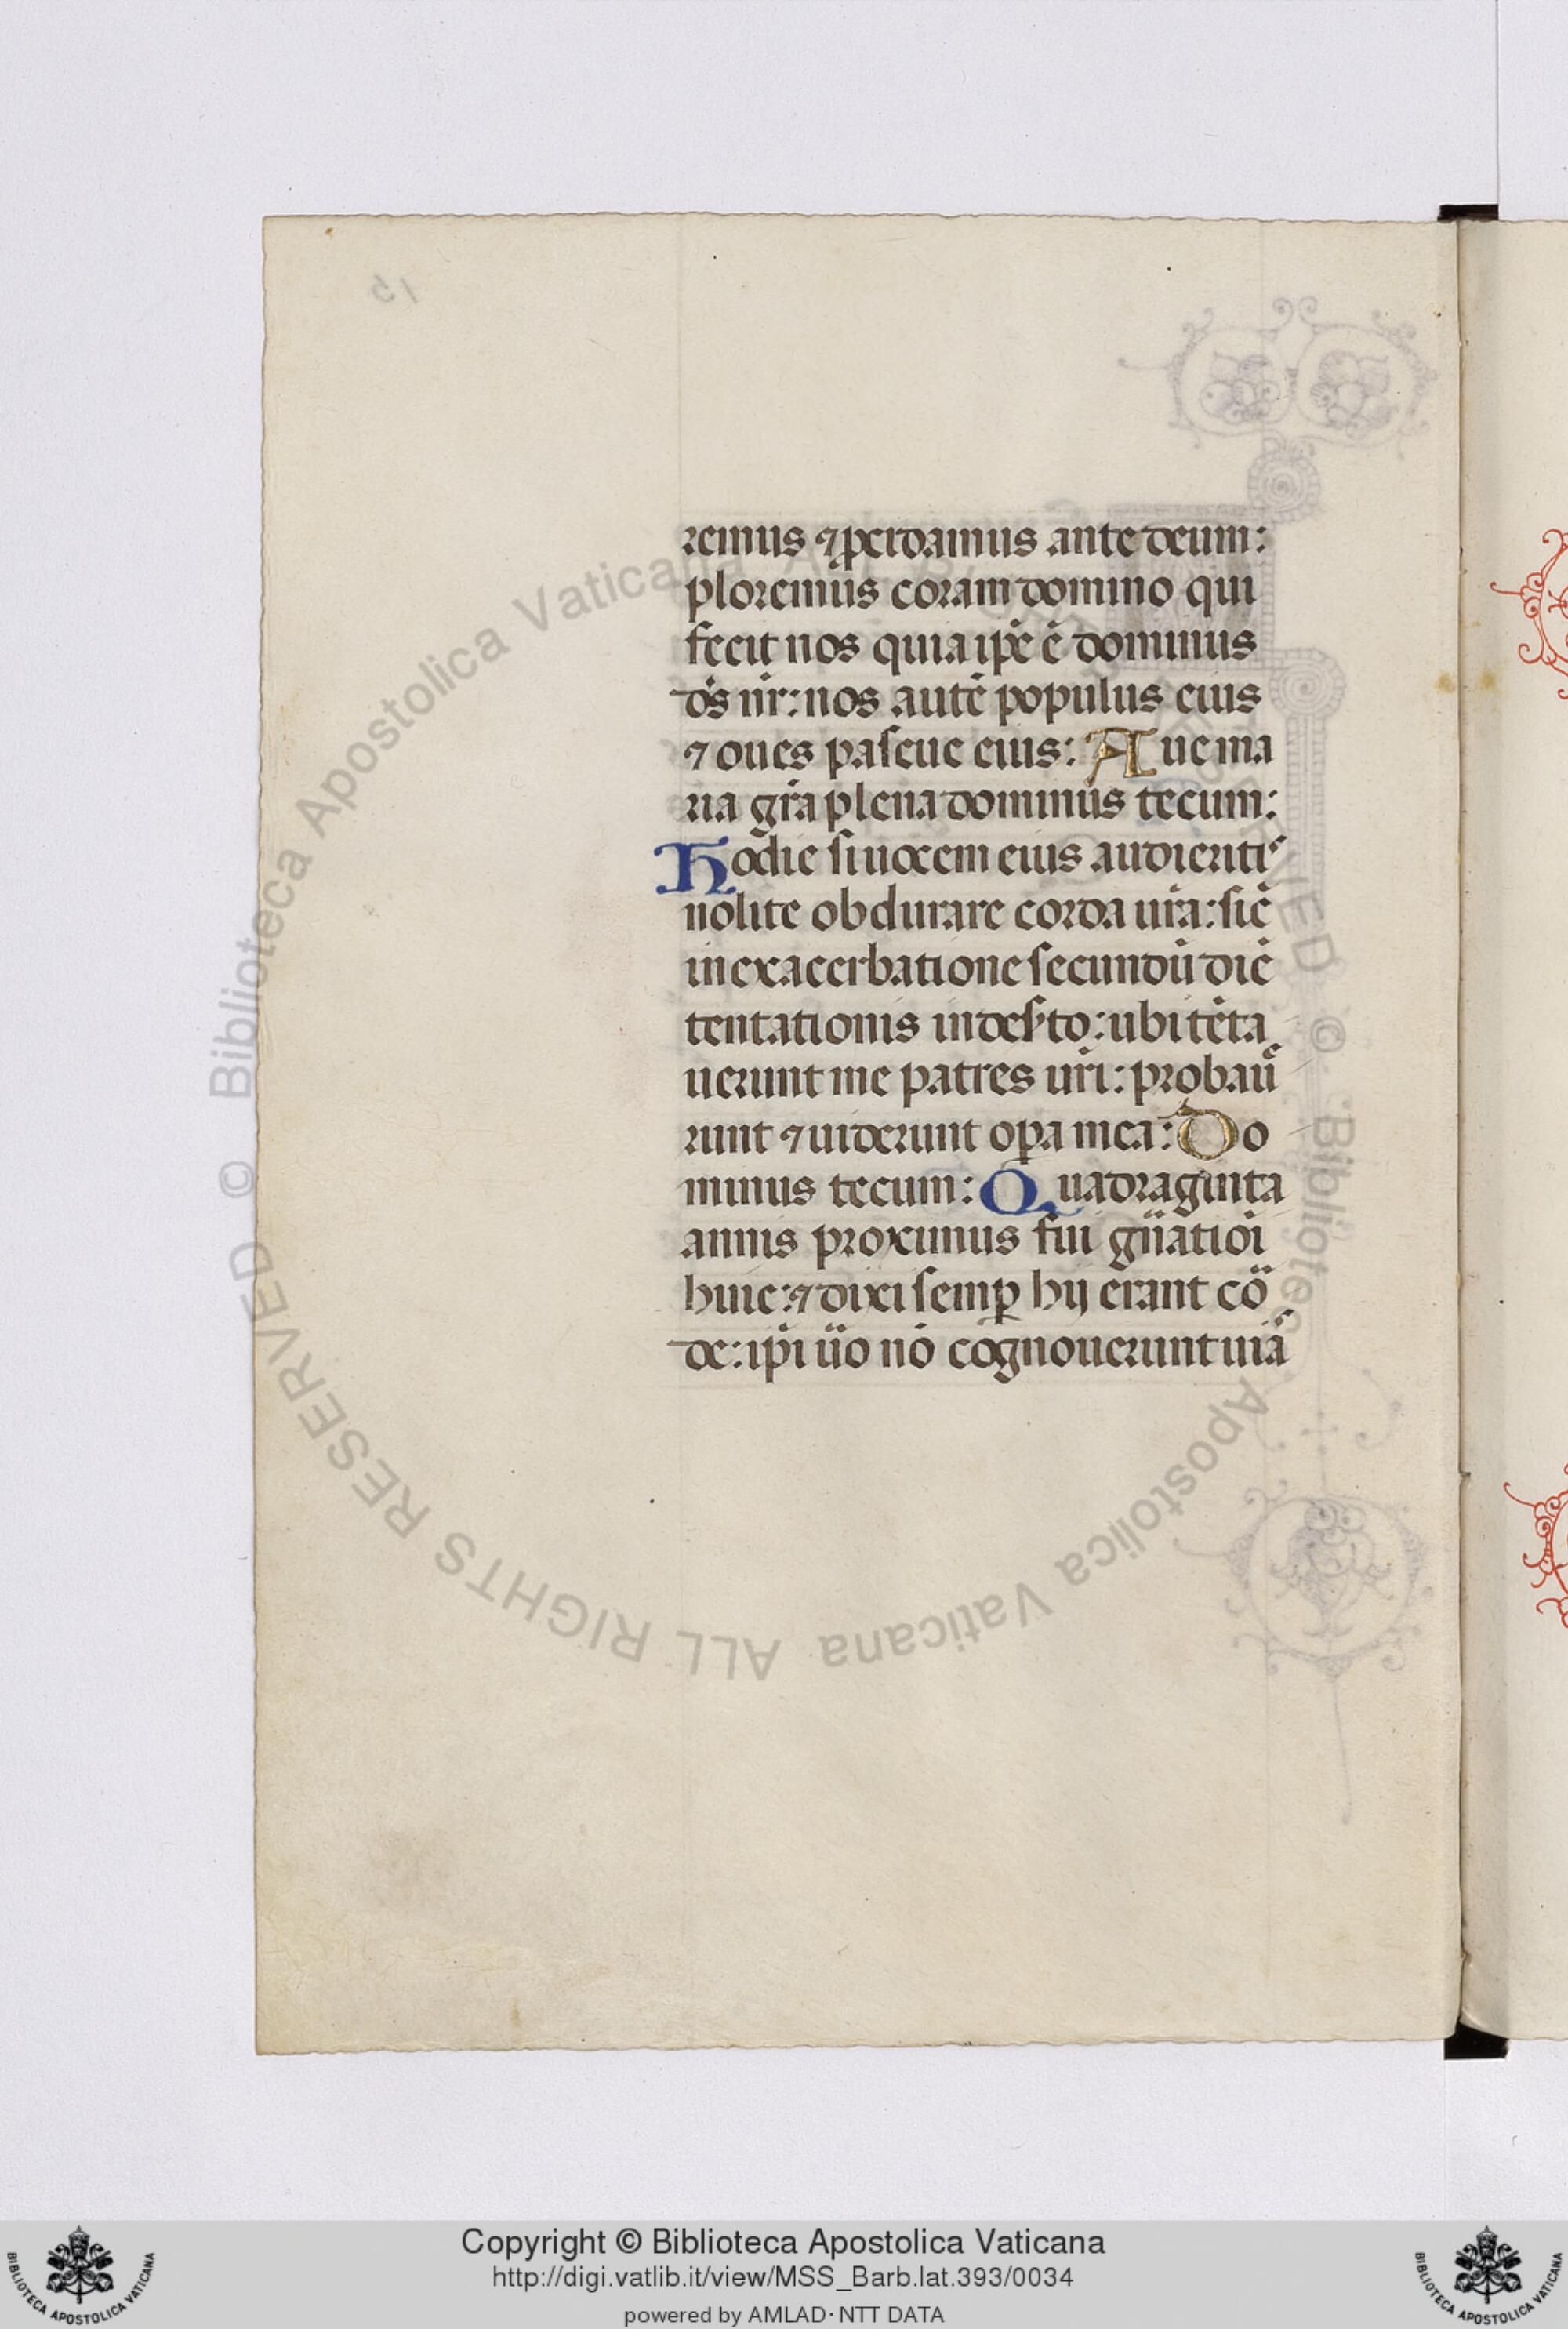 remus ⁊ perdamus ante deum:
ploremus coram domino qui
fecit nos quia ip̄e ē dominus
d̄s nr̄: nos autē populus eius
⁊ oues pascue eius: Aue ma
ria gr̄a plena dominus tecum:
Hodie si uocem eius audieritis
nolite obdurare corda ur̄a: sic̄
in exacerbatione secundū diē
tentationis in des̓to: ubi tēta
uerunt me patres ur̄i: probaū
runt ⁊ uiderunt op̄a mea: Do
minus tecum: Quadraginta
annis proximus fui gn̄atioī
huic: ⁊ dixi semp̄ hij erant cor
de: ip̄i ūo nō cognouerunt uiā
© Biblioteca Apostolica Vaticana ALL RIGHTS RESERVED © Biblioteca Apostolica Vaticana ALL RIGHTS RESERVED
Copyright © Biblioteca Apostolica Vaticana
http://digi.vatlib.it/view/MSS_Barb.lat.393/0034
powered by AMLAD·NTT DATA
BIBLIOTECA APOSTOLICA VATICANA
BIBLIOTECA APOSTOLICA VATICANA